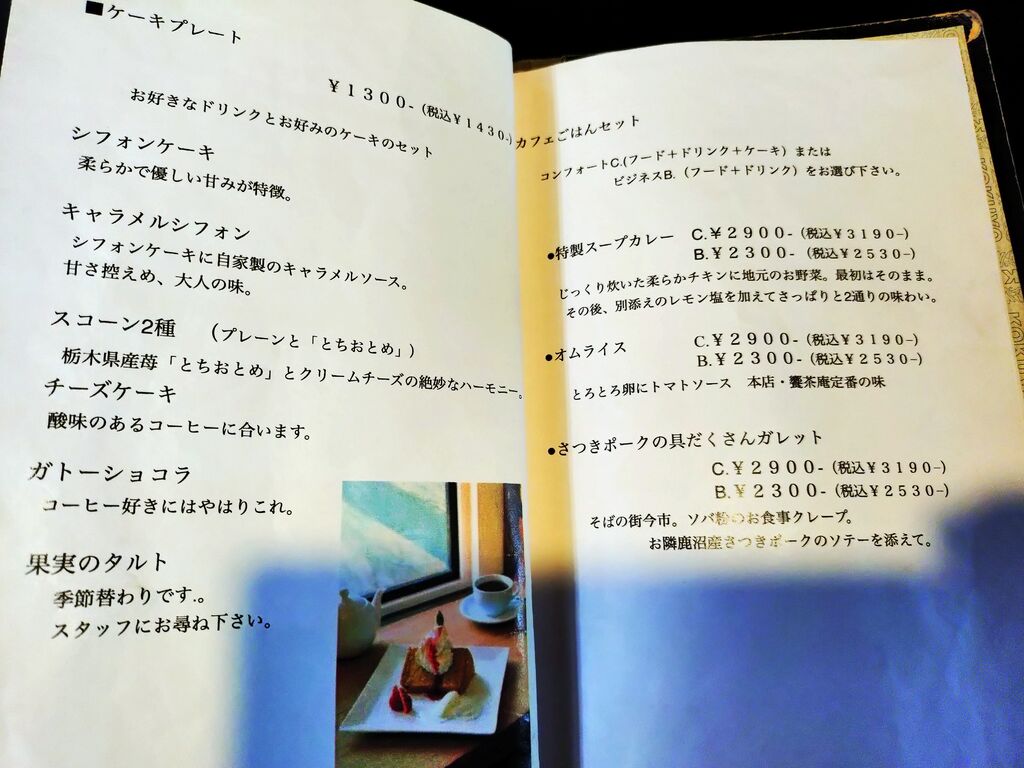 ■ケーキプレート
￥１３００-（税込￥１４３０-）
お好きなドリンクとお好みのケーキのセット
シフォンケーキ
柔らかで優しい甘みが特徴。
キャラメルシフォン
シフォンケーキに自家製のキャラメルソース。
甘さ控えめ、大人の味。
スコーン2種　（プレーンと「とちおとめ」）
栃木県産苺「とちおとめ」とクリームチーズの絶妙なハーモニー。
チーズケーキ
酸味のあるコーヒーに合います。
ガトーショコラ
コーヒー好きにはやはりこれ。
果実のタルト
季節替わりです.。
スタッフにお尋ね下さい。
カフェごはんセット
コンフォートC.(フード＋ドリンク＋ケーキ）または
ビジネスB.（フード＋ドリンク）をお選び下さい。
●特製スープカレー　C.￥２９００-（税込￥３１９０-）
B.￥２３００-（税込￥２５３０-）
じっくり炊いた柔らかチキンに地元のお野菜。最初はそのまま。
その後、別添えのレモン塩を加えてさっぱりと2通りの味わい。
●オムライス　C.￥２９００-（税込￥３１９０-）
B.￥２３００-（税込￥２５３０-）
とろとろ卵にトマトソース　本店・饗茶庵定番の味
●さつきポークの具だくさんガレット
C.￥２９００-（税込￥３１９０-）
B.￥２３００-（税込￥２５３０-）
そばの街今市。ソバ粉のお食事クレープ。
お隣鹿沼産さつきポークのソテーを添えて。